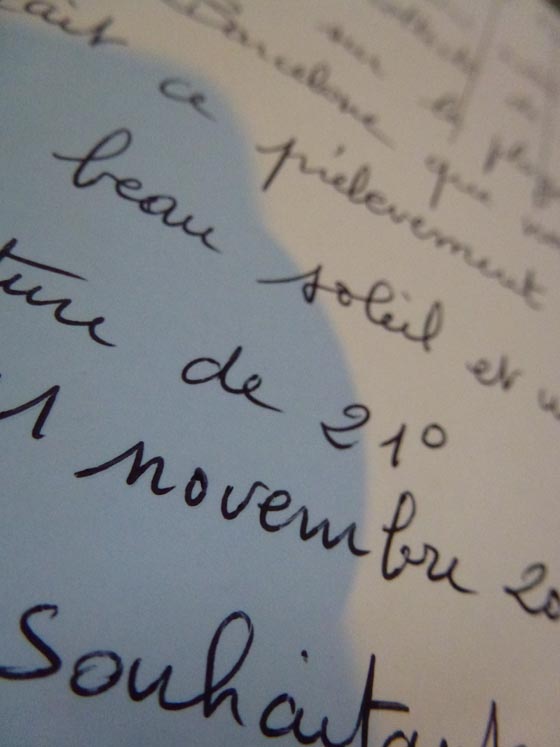 sur la plage
Barcelone que
ait ce prélèvement
beau soleil et u
ture de 21°
1 novembre 20
Souhaitant